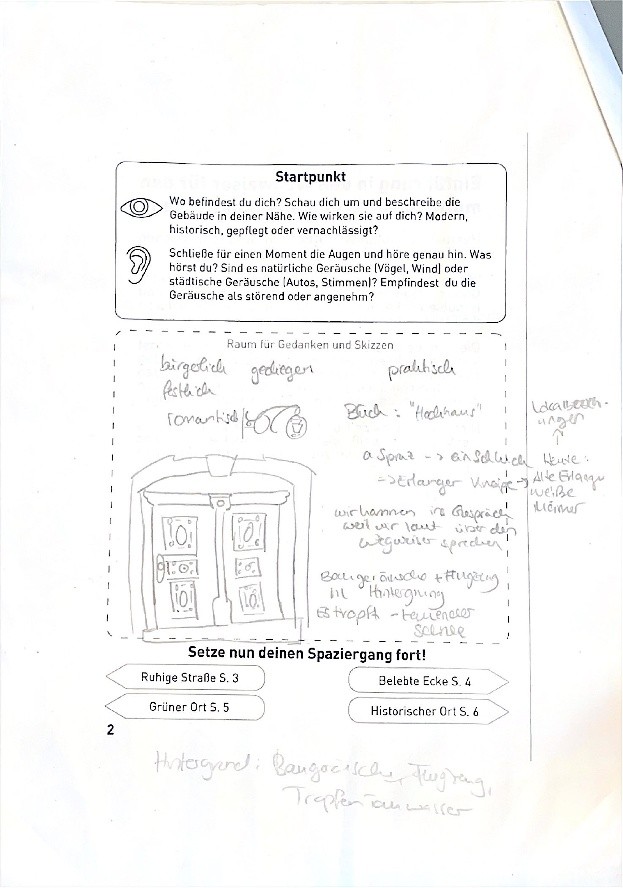 Startpunkt
Wo befindest du dich? Schau dich um und beschreibe die
Gebäude in deiner Nähe. Wie wirken sie auf dich? Modern,
historisch, gepflegt oder vernachlässigt?
Schließe für einen Moment die Augen und höre genau hin. Was
hörst du? Sind es natürliche Geräusche (Vögel, Wind) oder
städtische Geräusche (Autos, Stimmen)? Empfindest du die
Geräusche als störend oder angenehm?
Raum für Gedanken und Skizzen
bürgerlich gediegen praktisch
festlich
romantisch
: "Hochhaus"
a Spruz -> ein Schluck Heute:
-> Erlanger Kneipe -> Alte Erlanger
weiße
wir kommen ins Gespräch
weil wir laut über den
Wegweiser sprechen
Baugeräusche + Flugzeug
im Hintergrund
Es tropft - tauender
Schnee
Setze nun deinen Spaziergang fort!
Ruhige Straße S. 3
Belebte Ecke S. 4
Grüner Ort S. 5
Historischer Ort S. 6
2
Hintergrund: Baugeräusche, Flugzeug,
Tropfen Tauwasser